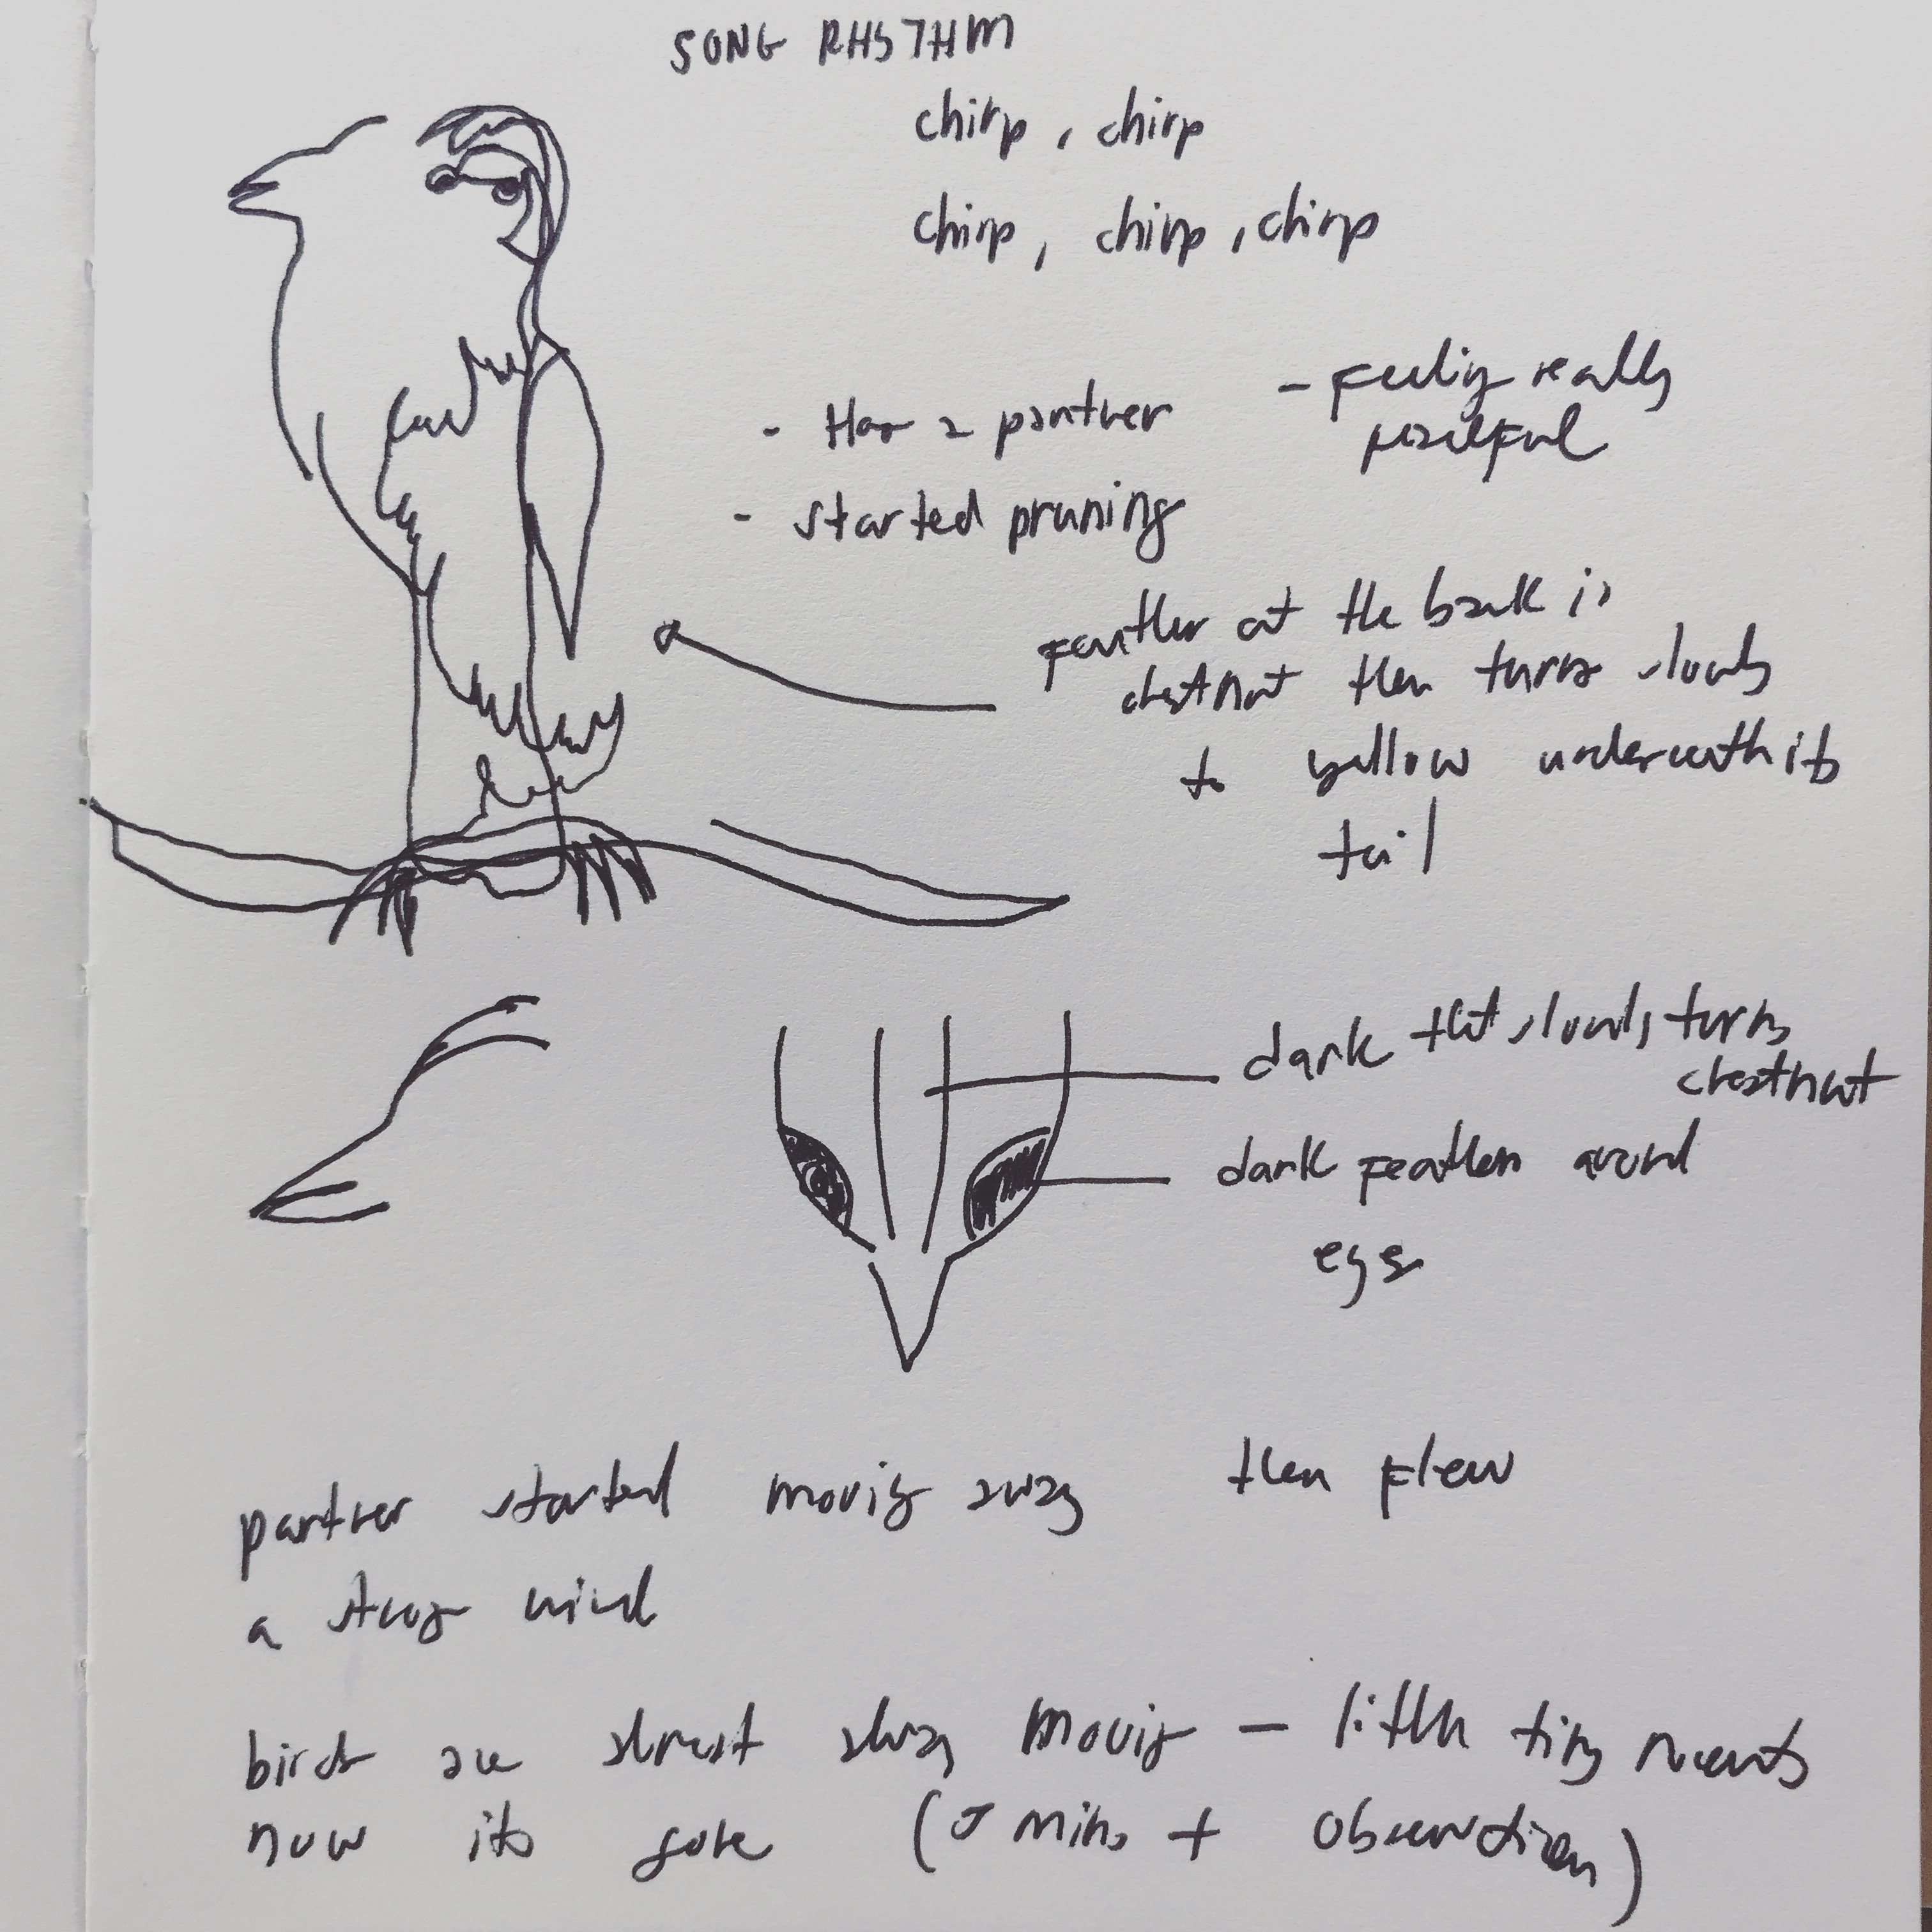 SONG RHYTHM
chirp, chirp
chirp, chirp, chirp
- Has a partner
- started pruning
- Feeling really
peaceful
feather at the back is
chestnut then turns slowly
to yellow underneath its
tail
dark that slowly turns
chestnut
dark feathers around
eyes
partner started moving away then flew
a strong wind
birds are almost always moving - little tiny movements
now its gone (5 mins + observation)